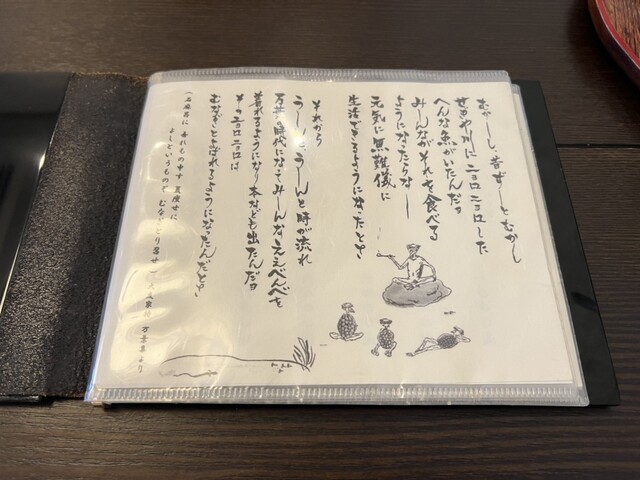 むかーし、昔ずーっとむかし
せきや川に ニョロニョロした
へんな魚がいたんだョ
みーんながそれを食べる
ようになったらなー
元気に無難儀に
生活できるようになったとさ
それから
うーんとうーんと時が流れ
万葉の時代になってみーんなええべんべを
着れるようになり本なども出たんだョ
そのニョロニョロは
むなぎとよばれるようになったんだとさ
(石麻呂に 吾れもの申す 夏痩せに
よしというものぞ むなぎとり召せ 大伴家持 万葉集より